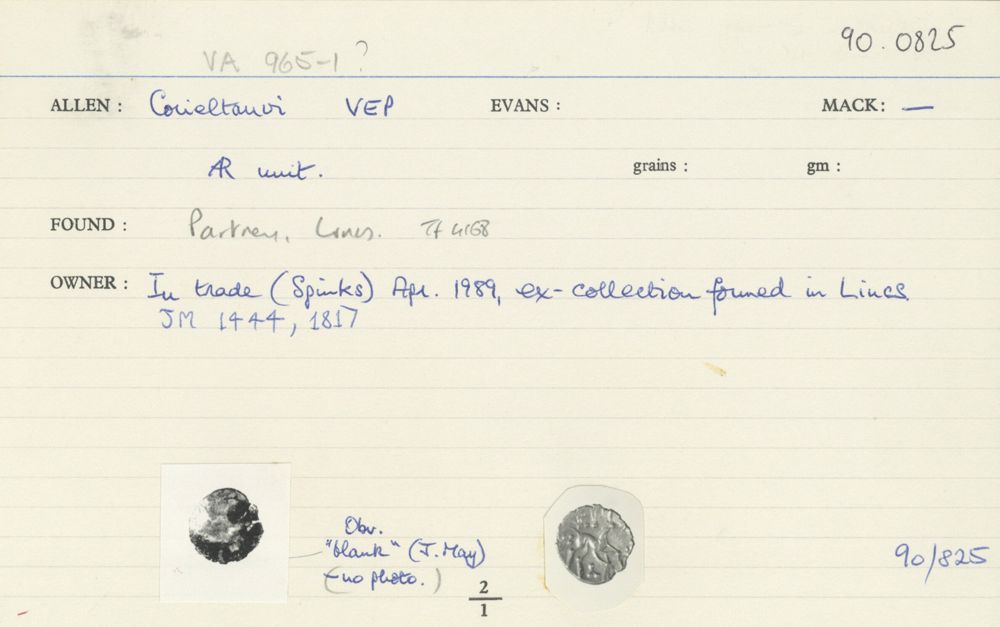 90.0825
VA 965-1?
ALLEN : Corieltauvi VEP EVANS : MACK: —
AR unit. grains : gm :
FOUND : Partney, Lincs. TF 4168
OWNER : In trade (Spinks) Apr. 1989, ex-collection formed in Lincs.
JM 1444, 1817
Obv.
"blank" (J. May)
(-no photo.)
2
1
90/825